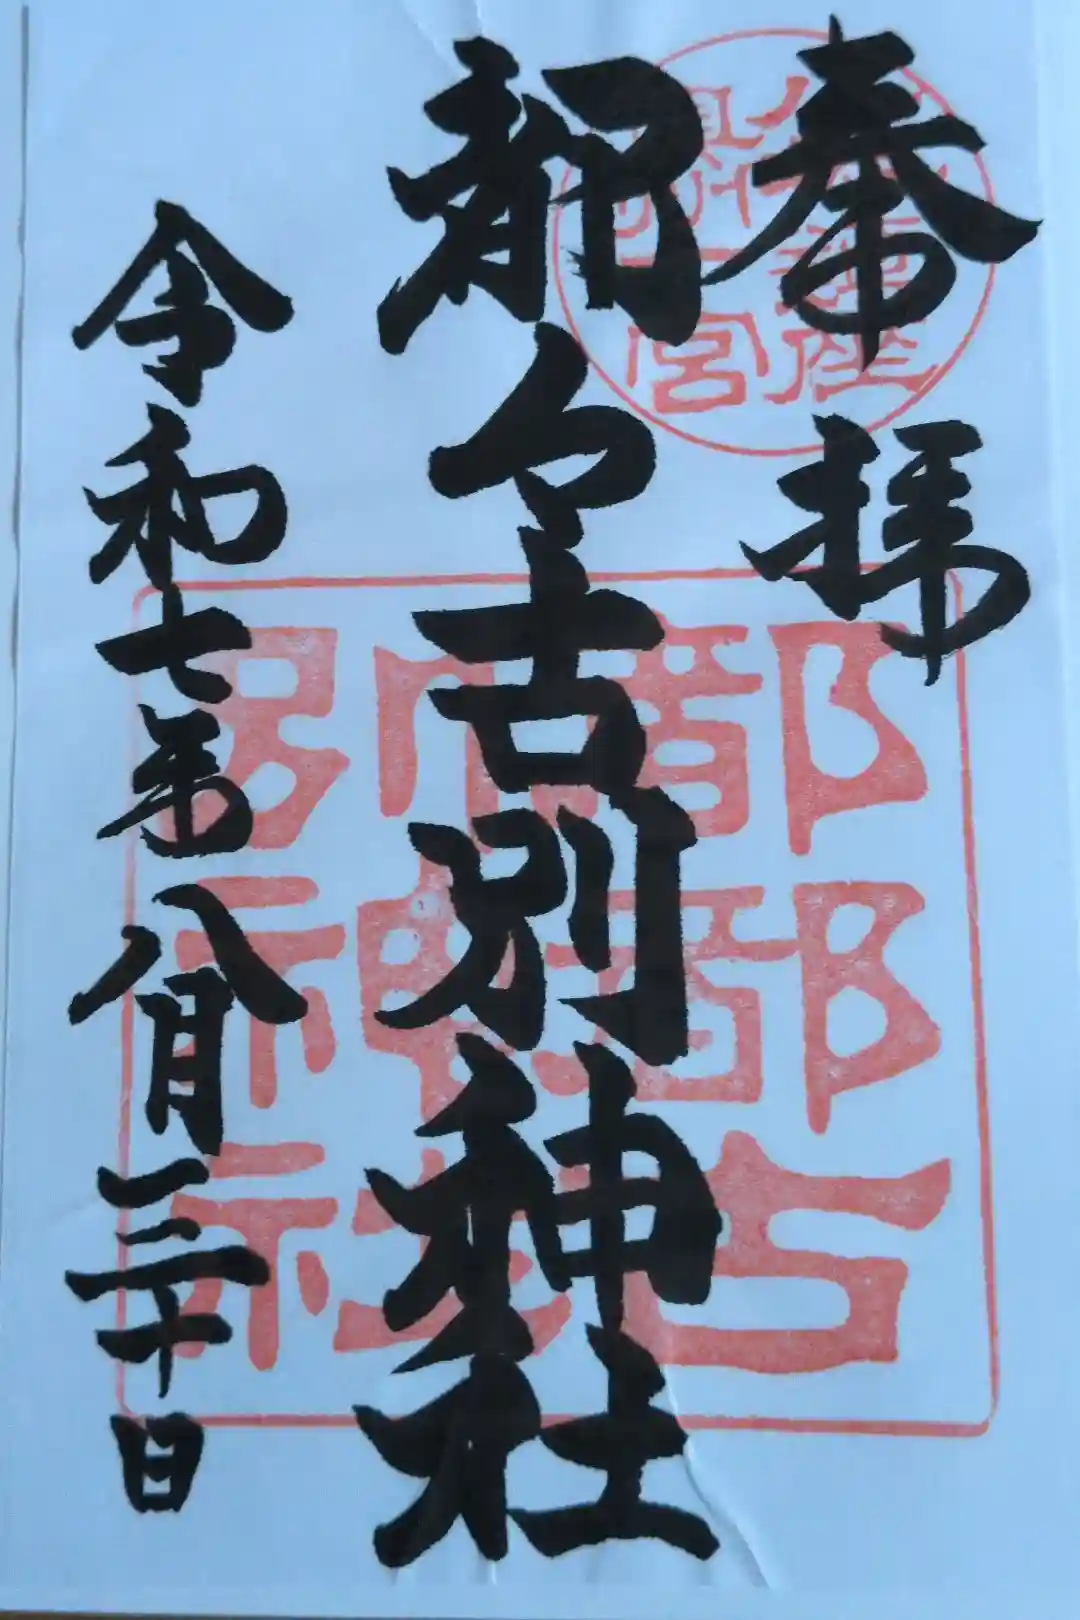 奉拝
都々古別神社
令和七年八月三十日
奥州一宮
都都古
別神社